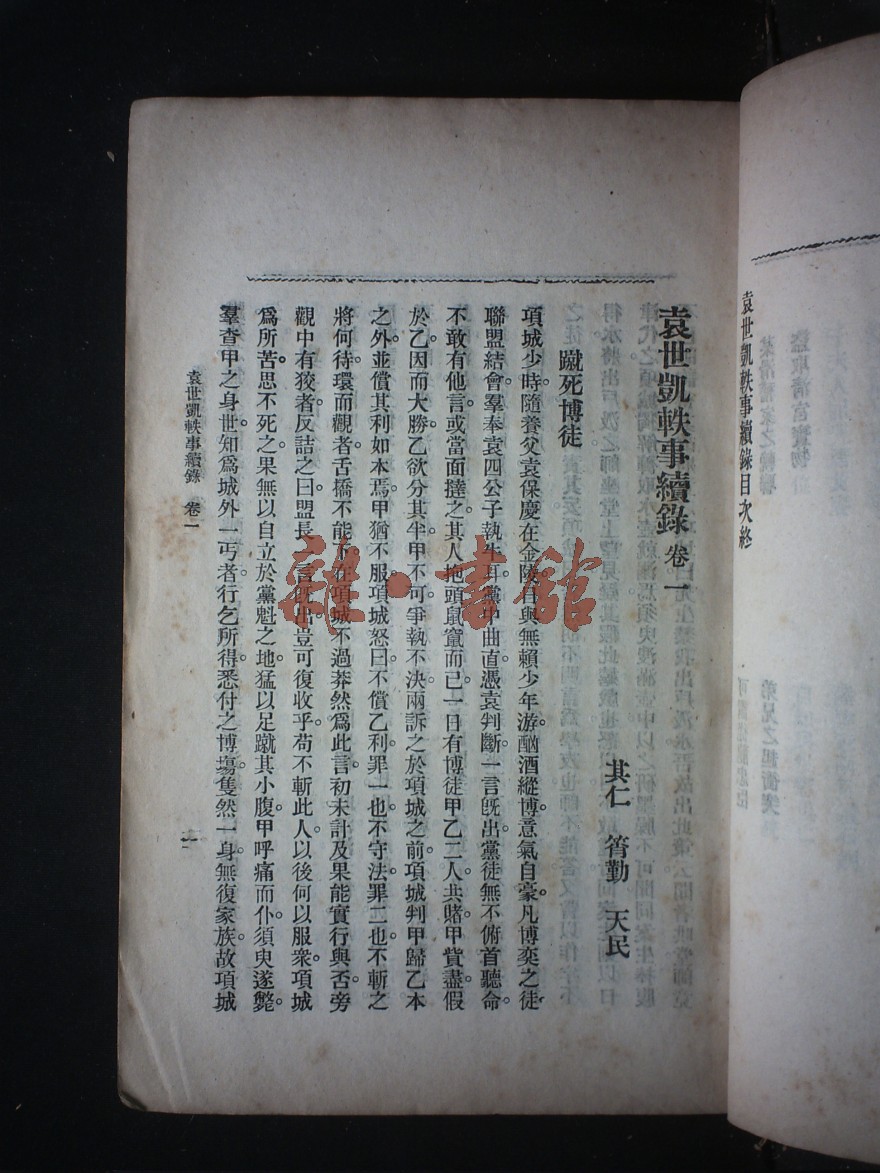 袁世凱軼事續錄目次終
弟兄之起衝突
袁世凱軼事續錄 卷一
其仁 筲勤 天民
蹴死博徒
項城少時隨養父袁保慶在金陵日與無賴少年游酗酒縱博意氣自豪凡博奕之徒
聯盟結會羣奉袁四公子執牛耳黨中曲直憑袁判斷一言旣出黨徒無不俯首聽命
不敢有他言或當面撻之其人抱頭鼠竄而已一日有博徒甲乙二人共賭甲貲盡假
於乙因而大勝乙欲分其半甲不可爭執不決兩訴之於項城之前項城判甲歸乙本
之外並償其利如本焉甲猶不服項城怒曰不償乙利罪一也不守法罪二也不斬之
將何待環而觀者舌撟不能下在項城不過莽然爲此言初未計及果能實行與否旁
觀中有狡者反詰之曰盟長一言旣出豈可復收乎苟不斬此人以後何以服衆項城
爲所苦思不死之果無以自立於黨魁之地猛以足蹴其小腹甲呼痛而仆須臾遂斃
羣查甲之身世知爲城外一丐者行乞所得悉付之博塲隻然一身無復家族故項城
袁世凱軼事續錄 卷一
一
雜·書館